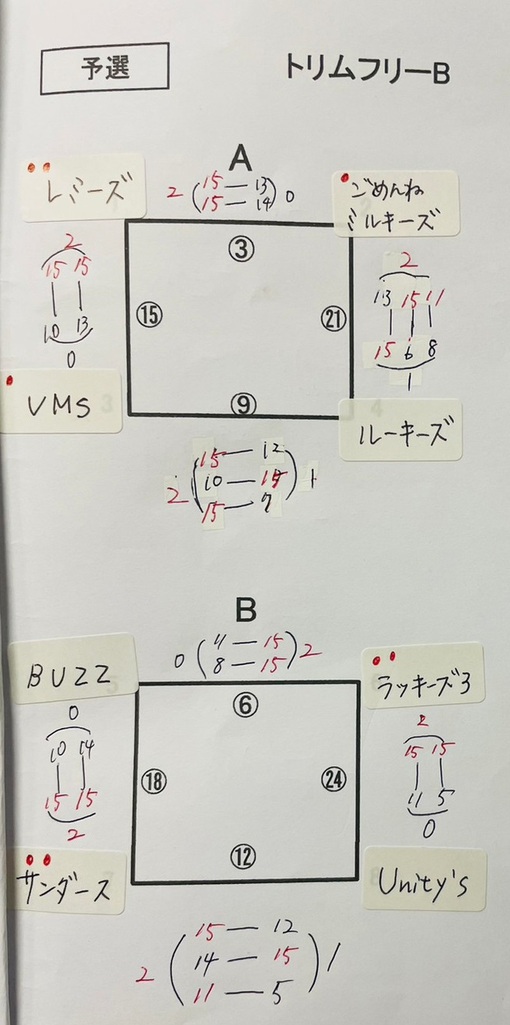 予選
トリムフリーB
A
レミーズ
2 (15 — 13) 0
15 — 14
ごめんね
ミルキーズ
③
2
15 15
10 13
0
⑮
㉑
2
13 15 11
15 6 8
1
VMS
⑨
ルーキーズ
2 (15 — 12) 1
10 — 15
15 — 7
B
BUZZ
0 (11 — 15) 2
8 — 15
ラッキーズ3
⑥
0
10 14
15 15
2
⑱
㉔
2
15 15
11 5
0
サンダース
⑫
Unity's
2 (15 — 12) 1
14 — 15
11 — 5